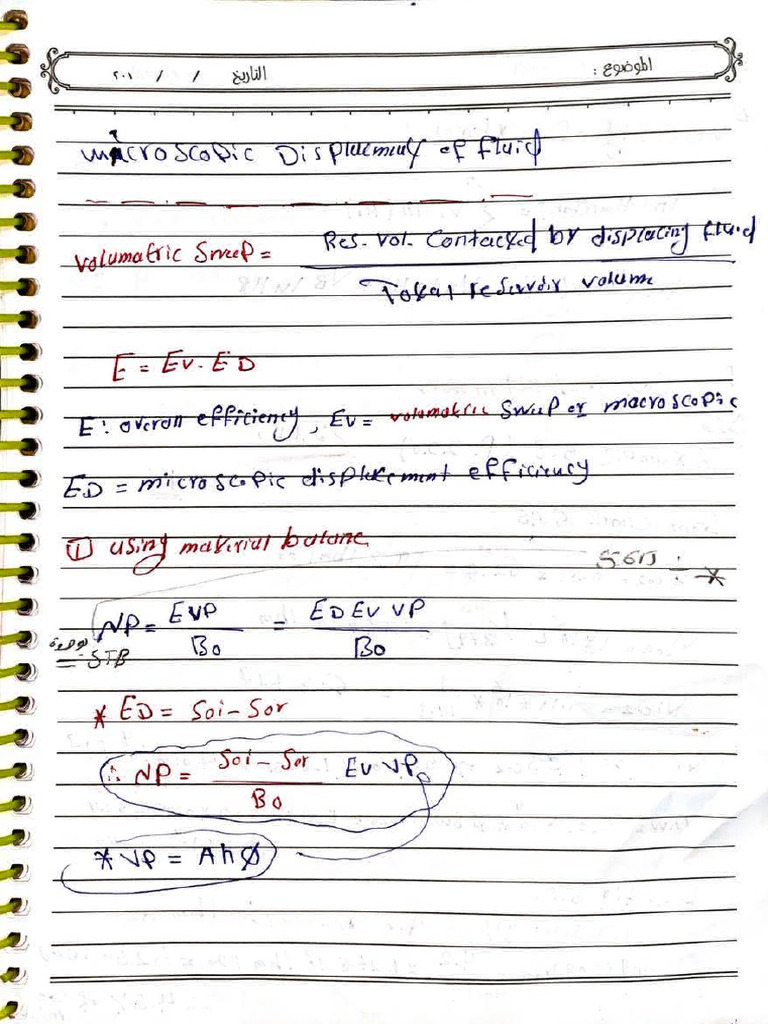 الموضوع : التاريخ / / ٢٠١
Microscopic Displacement of fluid
Volumatric Sweep = Res. vol. Contacted by displacing fluid
Total reservoir volume
E = Ev . ED
E : overall efficiency , Ev = volumatric Sweep or macroscopic
ED = microscopic displacement efficiency
① using material balanc
NP = EVP / Bo = ED EV VP / Bo
بوحدة
= STB
* ED = Soi - Sor
∴ NP = Soi - Sor / Bo EV VP
* VP = Ahϕ